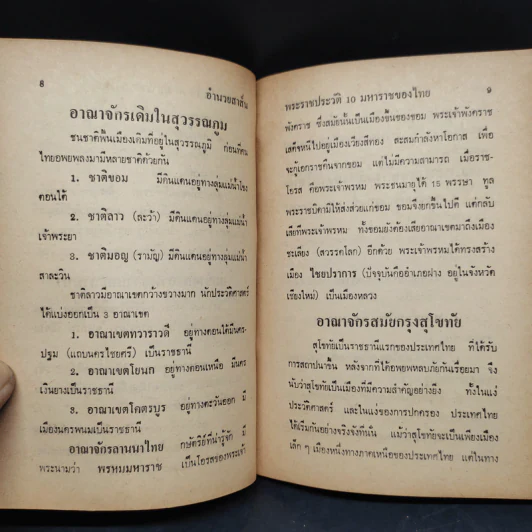 8
อำนวยสาส์น
อาณาจักรเดิมในสุวรรณภูมิ
ชนชาติพื้นเมืองเดิมที่อยู่ในสุวรรณภูมิ ก่อนที่คน
ไทยอพยพลงมามีหลายชาติด้วยกัน
1. ชาติขอม มีดินแดนอยู่ทางลุ่มแม่น้ำโขง
ตอนใต้
2. ชาติลาว (ละว้า) มีดินแดนอยู่ทางลุ่มแม่น้ำ
เจ้าพระยา
3. ชาติมอญ (รามัญ) มีดินแดนอยู่ทางลุ่มแม่น้ำ
สาละวิน
ชาติลาวมีอาณาเขตกว้างขวางมาก นักประวัติศาสตร์
ได้แบ่งออกเป็น 3 อาณาเขต
1. อาณาเขตทวาราวดี อยู่ทางตอนใต้มีนคร-
ปฐม (แถบนครไชยศรี) เป็นราชธานี
2. อาณาเขตโยนก อยู่ทางตอนเหนือ มีนคร
เงินยางเป็นราชธานี
3. อาณาเขตโคตรบูร อยู่ทางตะวันออก มี
เมืองนครพนมเป็นราชธานี
อาณาจักรลานนาไทย กษัตริย์ที่น่ารู้จัก มี
พระนามว่า พรหมมหาราช เป็นโอรสของพระเจ้า
พระราชประวัติ 10 มหาราชของไทย
9
พังคราช ซึ่งสมัยนั้นเป็นเมืองขึ้นของขอม พระเจ้าพังคราช
เสด็จหนีไปอยู่เมืองเวียงสีทอง สะสมกำลังหาโอกาส เพื่อ
จะกู้เอกราชคืนจากขอม แต่ไม่มีความสามารถ เมื่อราช-
โอรส คือพระเจ้าพรหม พระชนมายุได้ 15 พรรษา ทูล
พระราชบิดามิให้ส่งส่วยแก่ขอม ขอมจึงยกขึ้นไปตี แต่กลับ
เสียทีพระเจ้าพรหม ทั้งขอมยังต้องเสียอาณาเขตมาถึงเมือง
ชะเลียง (สวรรคโลก) อีกด้วย พระเจ้าพรหมได้ทรงสร้าง
เมือง ไชยปราการ (ปัจจุบันคืออำเภอฝาง อยู่ในจังหวัด
เชียงใหม่) เป็นเมืองหลวง
อาณาจักรสมัยกรุงสุโขทัย
สุโขทัยเป็นราชธานีแรกของประเทศไทย ที่ได้รับ
การสถาปนาขึ้น หลังจากที่ได้อพยพหลบภัยกันเรื่อยมา จึง
นับว่าสุโขทัยเป็นเมืองที่มีความสำคัญอย่างยิ่ง ทั้งในแง่
ประวัติศาสตร์ และในแง่ของการปกครอง ประเทศไทย
ได้เริ่มกันอย่างจริงจังที่นั่น แม้ว่าสุโขทัยจะเป็นเพียงเมือง
เล็ก ๆ เมืองหนึ่งทางภาคเหนือของประเทศไทย แต่ในทาง